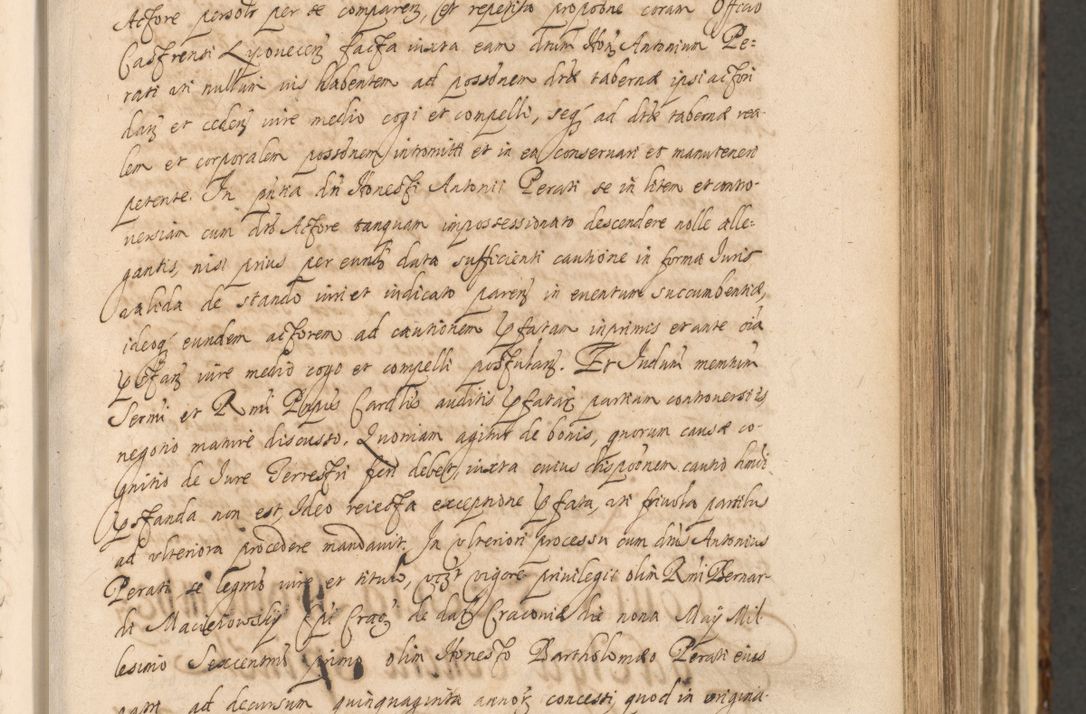 Actore personali per se comparen, et repetita propone coram Officio
Castrensi Lipouecen facta iuxta eam dnum Hon Antonium Pe:
rati uti nullum ius habentem ad possonem dtæ tabernæ ipsi actori
dan et ceden iure medio cogi et compelli, seq ad dtæ tabernæ rea-
lem et corporalem possonem intromitti et in ea conseruari et manuteneri
petente. In pntia dni Honesti Antonii Perati se in litem et contro-
uersiam cum dto Actore tanquam impossessionato descendere nolle alle-
gantis, nisi prius per eund data sufficienti cautione in forma Iuris
valida de stando iuri et iudicato paren in euentum succumbentiæ,
ideoq eundem actorem ad cautionem pfatam inprimis et ante oia
pstan iure medio cogo et compelli postulan. Et Iudum memtum
Sermi et Rmi Pnpis Cardlis auditis pfatar partium controuersiis,
negotio mature discusso. Quoniam agitur de bonis, quorum causæ co-
gnitio de Iure Terrestri fieri debet, iuxta cuius disponem cautio
pstanda non est, Ideo reiecta exceptione pfata, uti friuola partibus
ad vlteriora procedere mandauit. In vlteriori processu cum dnus Antonius
Perati se legmo iure et titulo, vigore priuilegii olim Rmi Bernar-
di Macieiowskij Epi Crac de dat Cracouiæ die nona Maÿ Mil-
lesimo Sexcentmo primo olim Honesto Bartholomæo Perati eius
patri ad decursum quinquaginta annor concessi, quod in origina-